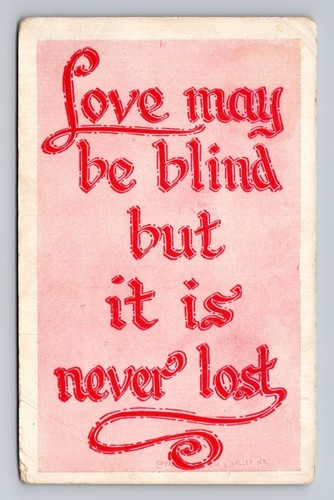 Love may
be blind
but
it is
never lost